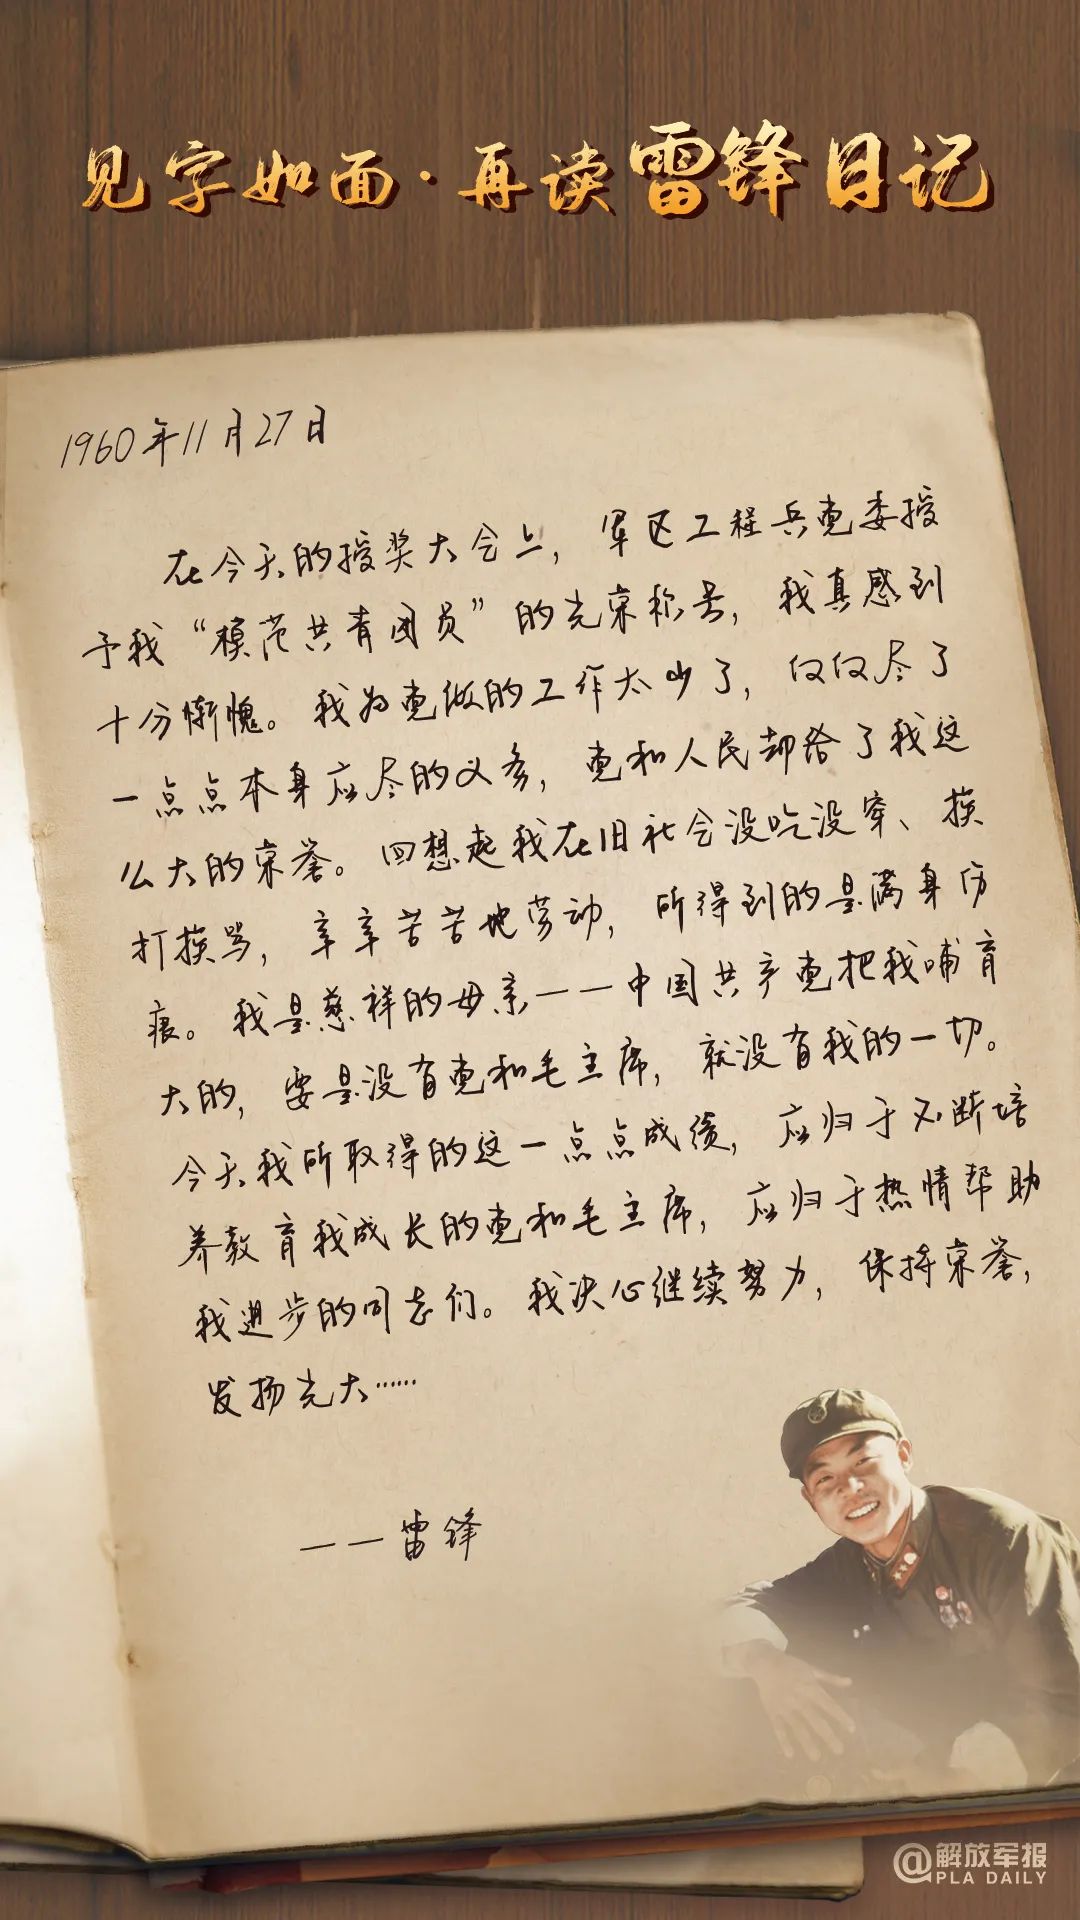 见字如面·再读雷锋日记
1960年11月27日
在今天的授奖大会上，军区工程兵党委授
予我“模范共青团员”的光荣称号，我真感到
十分惭愧。我为党做的工作太少了，仅仅尽了
一点点本身应尽的义务，党和人民却给了我这
么大的荣誉。回想起我在旧社会没吃没穿、挨
打挨骂，辛辛苦苦地劳动，所得到的是满身伤
痕。我是慈祥的母亲——中国共产党把我哺育
大的，要是没有党和毛主席，就没有我的一切。
今天我所取得的这一点点成绩，应归于不断培
养教育我成长的党和毛主席，应归于热情帮助
我进步的同志们。我决心继续努力，保持荣誉，
发扬光大……
——雷锋
@解放军报
PLA DAILY